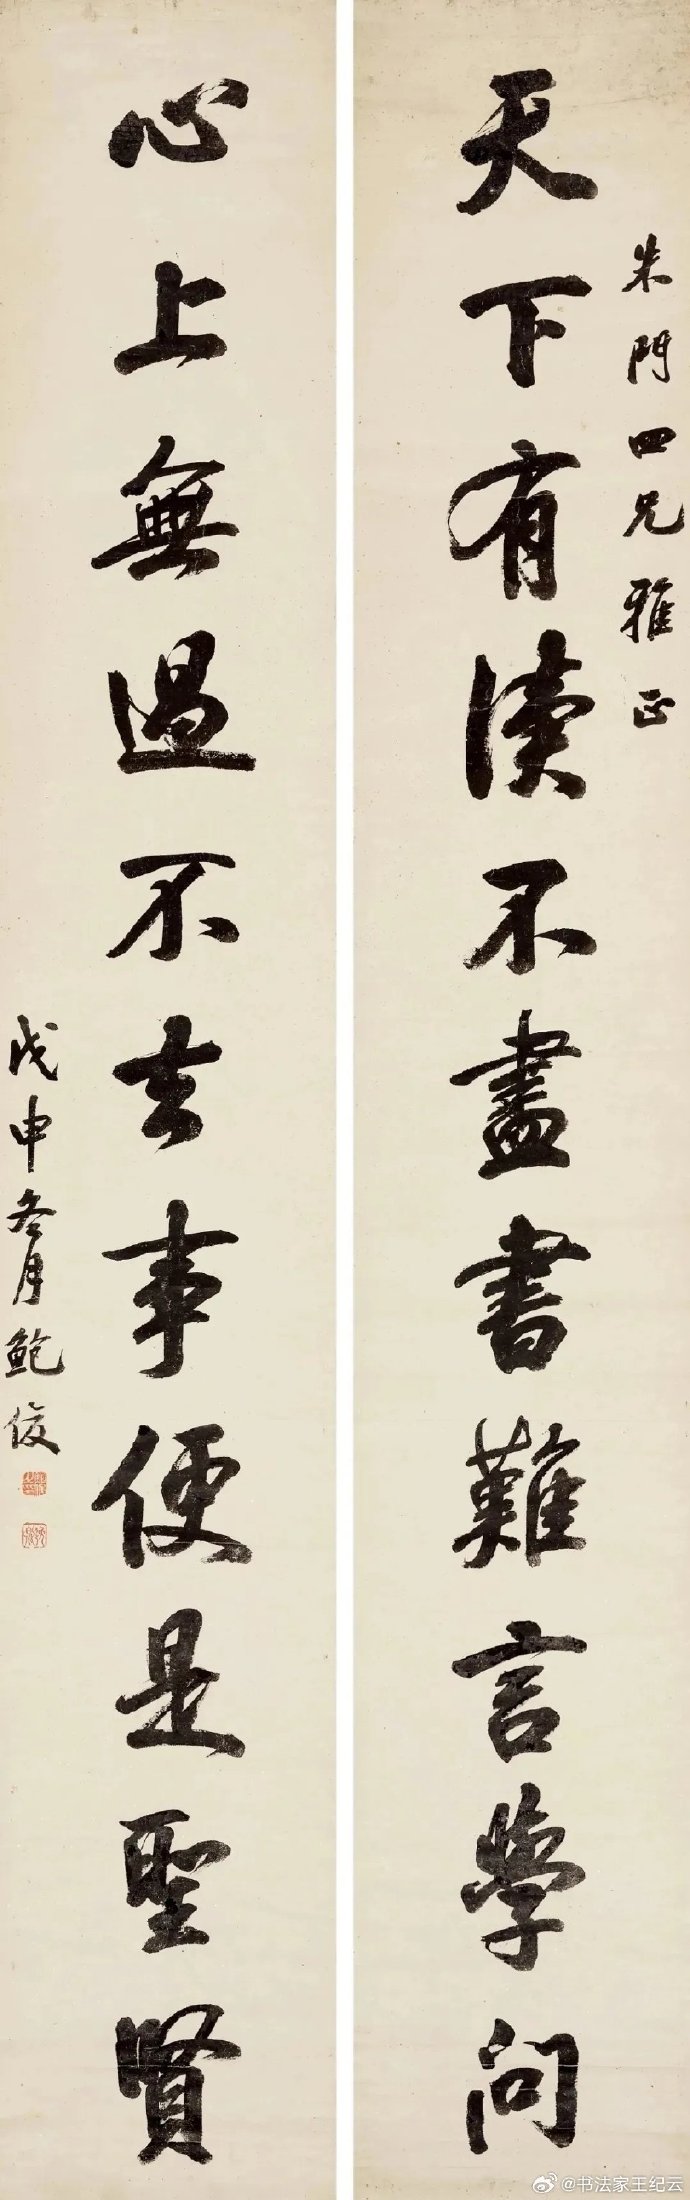 朱門四兄雅正
天下有讀不盡書難言學問
心上無過不去事便是聖賢
戊申冬月鮑俊
@书法家王纪云